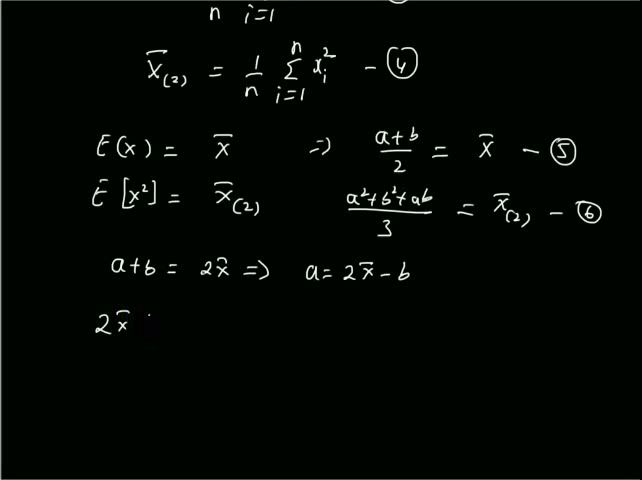 n i=1
x̄₍₂₎ = 1/n Σ_{i=1}^{n} xᵢ² - ④
E(x) = x̄ => (a+b)/2 = x̄ - ⑤
E[x²] = x̄₍₂₎ (a²+b²+ab)/3 = x̄₍₂₎ - ⑥
a+b = 2x̄ => a = 2x̄ - b
2x̄